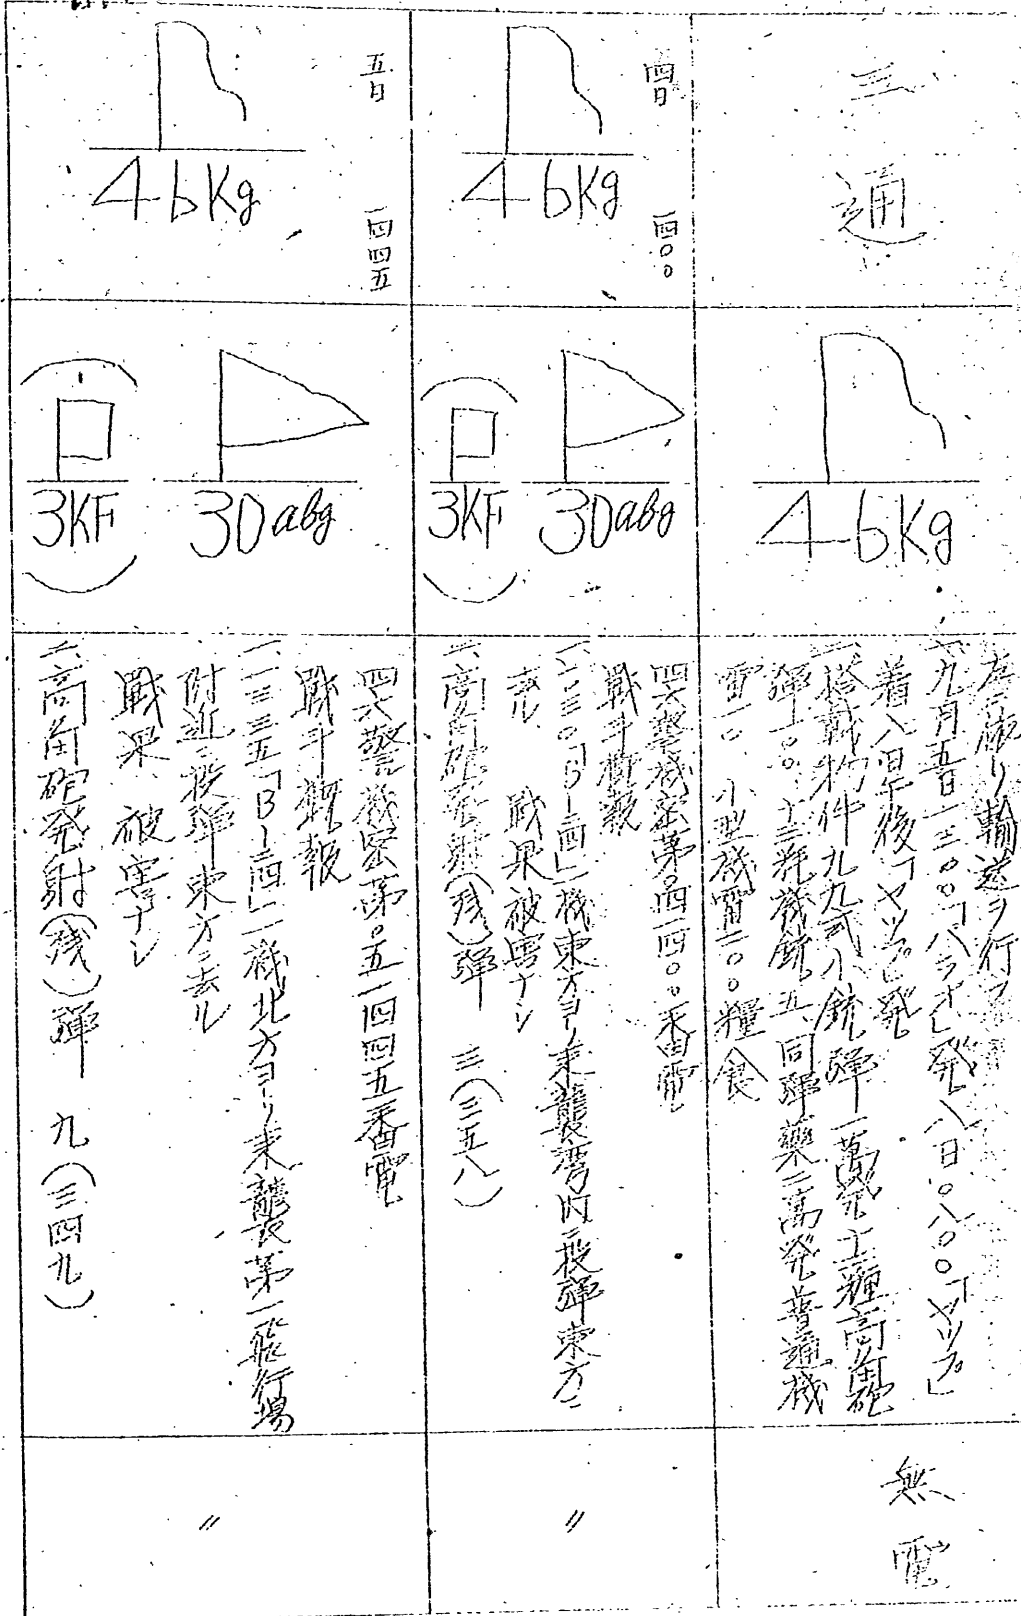 三
通)
4bKg
左ニ依リ輸送ヲ行フ
一、九月五日一三〇〇「パラオ」発八日〇八〇〇「ヤップ」
着八日午後「ヤップ」発
二、搭載物件九九式小銃弾一萬発十二糎高角砲
弾一〇〇、十三粍機銃五、同弾薬二萬発普通機
雷一〇 小型機雷二〇〇糧食
無電
四日 一四〇〇
4bKg
3Dabg
(3KF)
四六警機密第〇四一四〇〇番電
戦斗概報
一、一二三〇「B-二四」一機東方ヨリ来襲湾内ニ投弾東方ニ
去ル 戦果被害ナシ
二、高角砲発射(残)弾 三(三五八)
〃
五日 一四四五
4bKg
3Dabg
(3KF)
四六警機密第〇五一四四五番電
戦斗概報
一、一三三五「B-二四」一機北方ヨリ来襲第一飛行場
附近ニ投弾東方ニ去ル
戦果 被害ナシ
二、高角砲発射(残)弾 九(三四九)
〃